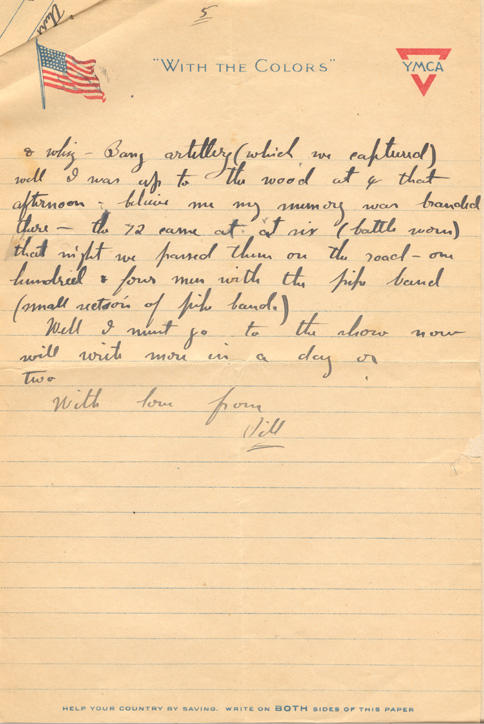 5
"WITH THE COLORS"
YMCA
& whiz - Bang artillery (which we captured)
well I was up to the wood at 4 that
afternoon; believe me my memory was branded
there - the 72 came at at six (battle worn)
that night we passed them on the road - one
hundred & four men with the pipe band
(small section of pipe band.)
Well I must go to the show now
will write more in a day or
two
With love from
Will
HELP YOUR COUNTRY BY SAVING. WRITE ON BOTH SIDES OF THIS PAPER